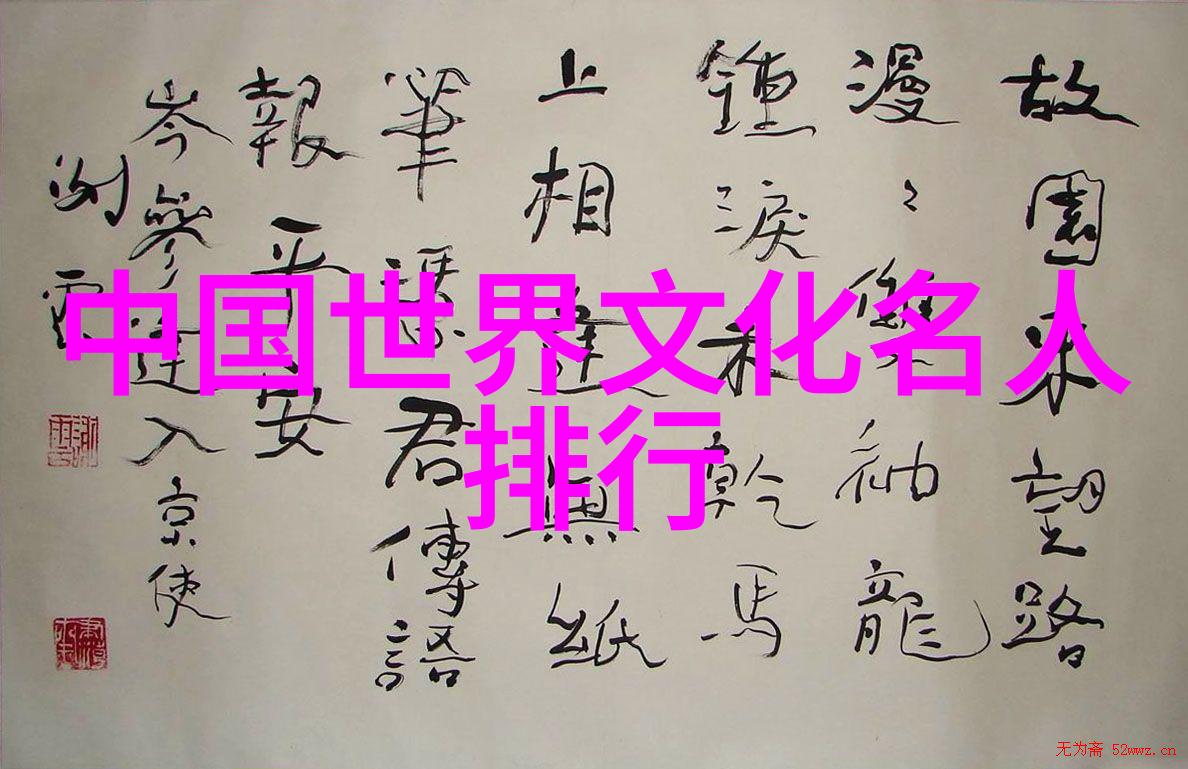 中国世界文化名人
排行
故園東望路
漫〻雙袖龍
鍾淚不乾馬
上相逢無紙
筆憑君傳語
報平安
岑參逢入京使
无为斋 52wwz.cn